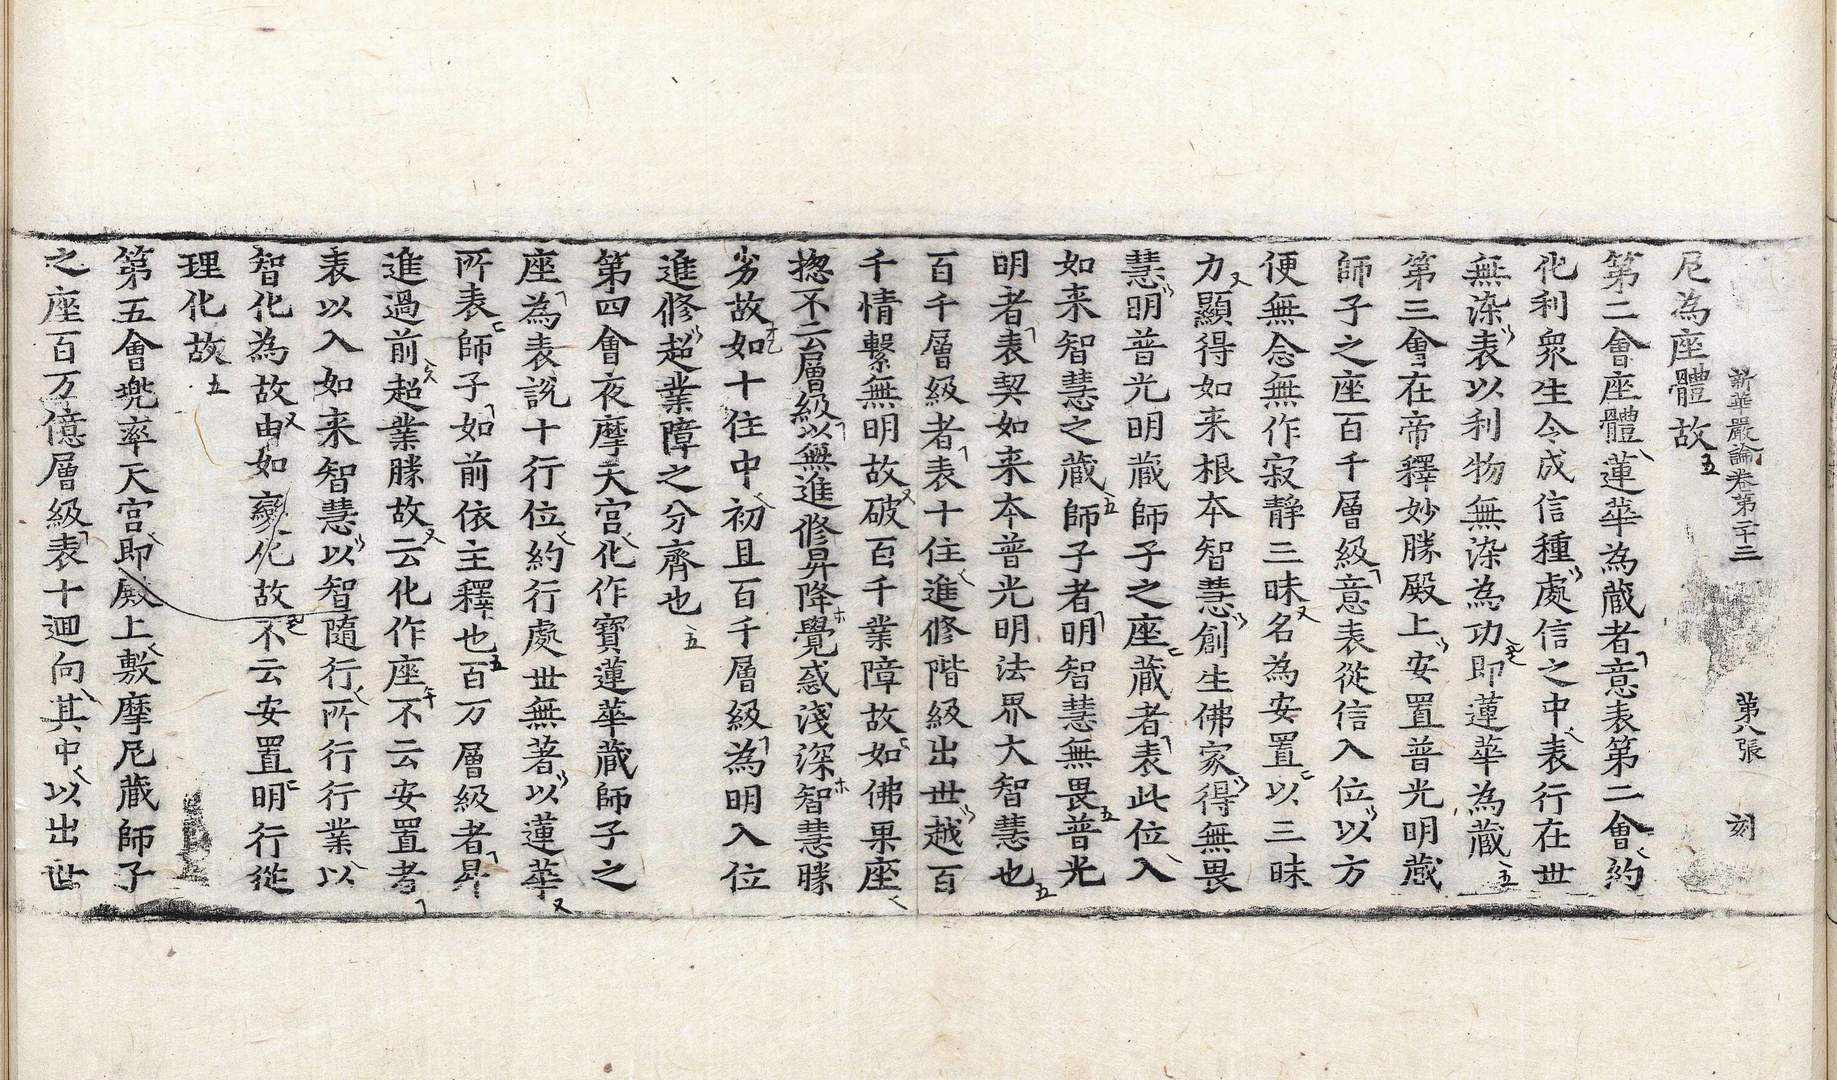 新華嚴論卷第二十三　第八張　刻
尼為座體故
第二會座體蓮華為藏者意表第二會約
化利衆生令成信種處信之中表行在世
無染表以利物無染為功即蓮華為藏
第三會在帝釋妙勝殿上安置普光明藏
師子之座百千層級意表從信入位以方
便無念無作寂靜三昧名為安置以三昧
力顯得如来根本智慧創生佛家得無畏
慧明普光明藏師子之座藏者表此位入
如来智慧之藏師子者明智慧無畏普光
明者表契如来本普光明法界大智慧也
百千層級者表十住進修階級出世越百
千情繫無明故破百千業障故如佛果座
揔不云層級以無進修昇降覺惑淺深智慧勝
劣故如十住中初且百千層級為明入位
進修超業障之分齊也
第四會夜摩天宮化作寶蓮華藏師子之
座為表說十行位約行處世無著以蓮華
所表師子如前依主釋也百万層級者昇
進過前超業勝故云化作座不云安置者
表以入如来智慧以智隨行所行行業以
智化為故由如變化故不云安置明行從
理化故
第五會兜率天宮即殿上敷摩尼藏師子
之座百万億層級表十迴向其中以出世